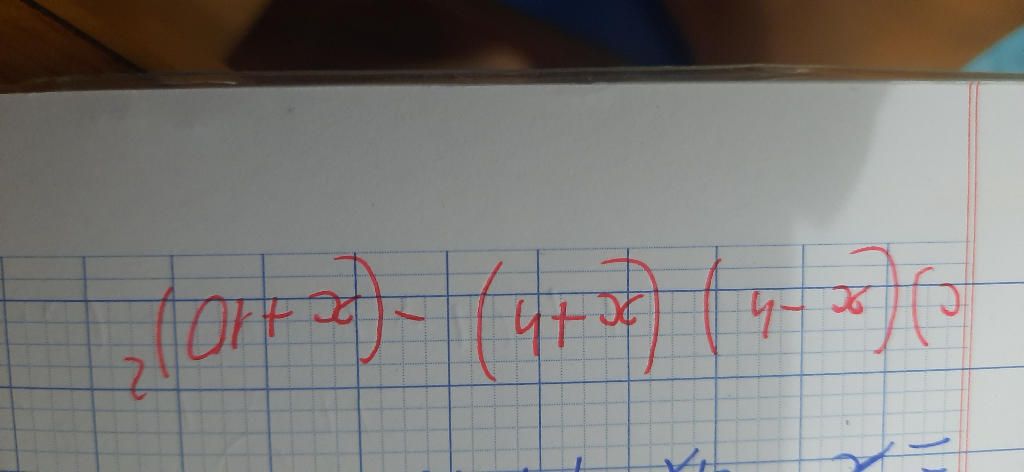 c) (x - 4) (x + 4) - (x + 10)²